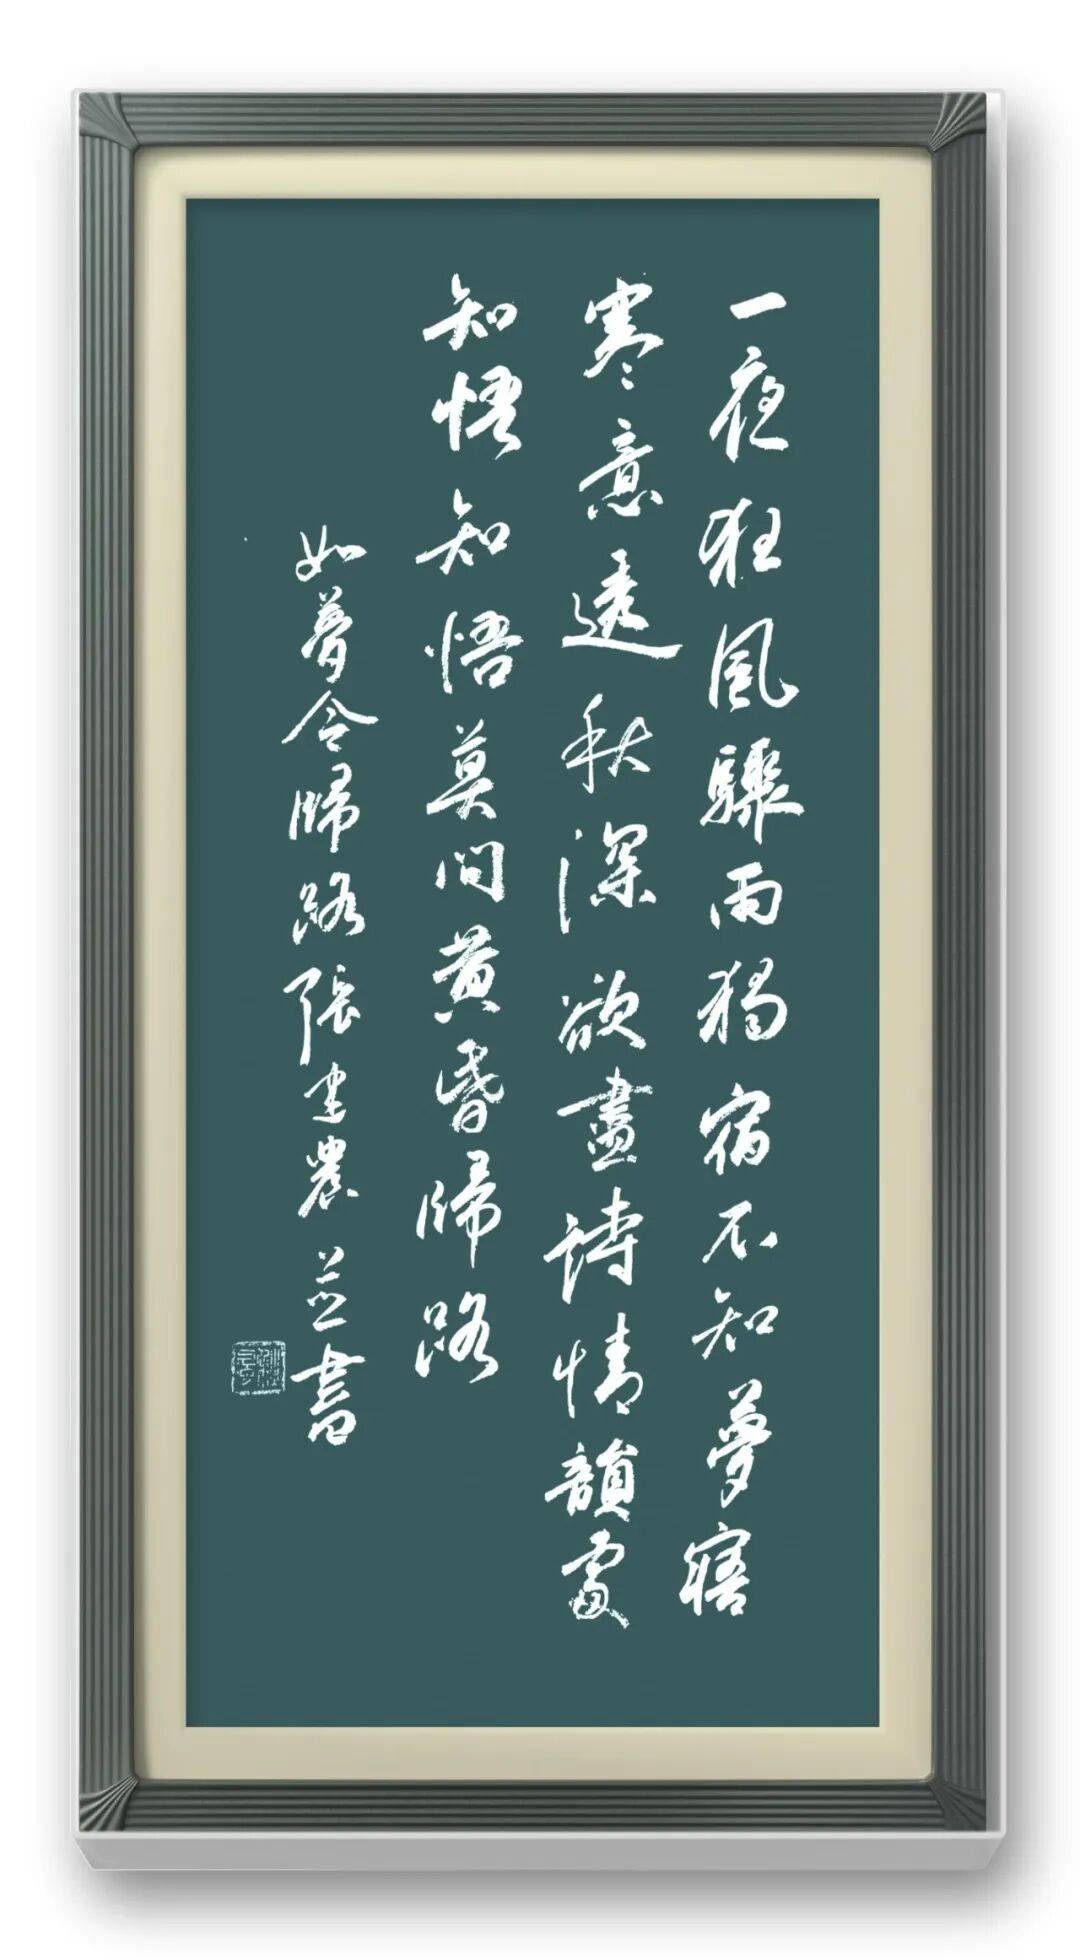 一夜狂風驟雨獨宿不知夢寤
寒意透秋深欲盡詩情韻處
知悟知悟莫问黄昏歸路
如夢令歸路張建農並書